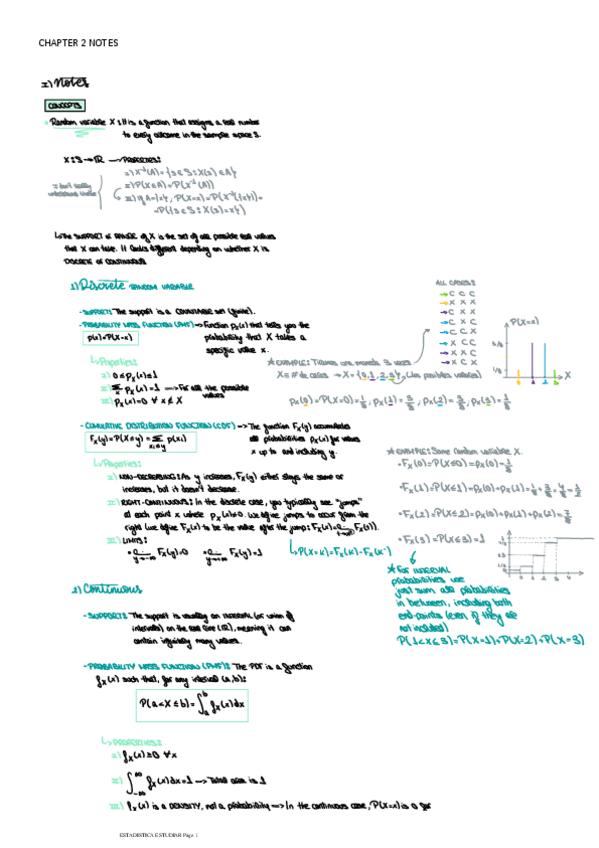 CHAPTER 2 NOTES
2) Notes
CONCEPTS
Random variable X: It is a function that assigns a real number
to every outcome in the sample space S.
X: S → ℝ → PROPERTIES:
I) X⁻¹(A) = {s ∈ S : X(s) ∈ A}
II) P(X ∈ A) = P(X⁻¹(A))
III) If A = {x}, P(X=x) = P(X⁻¹({x})) =
= P({s ∈ S : X(s) = x})
I don't really
understand these
↳ The SUPPORT or RANGE of X is the set of all possible real values
that X can take. It looks different depending on whether X is
DISCRETE or CONTINUOUS
1) Discrete RANDOM VARIABLE
- SUPPORT: The support is a COUNTABLE set (finite).
- PROBABILITY MASS FUNCTION (PMF) → Function pₓ(x) that tells you the
p(x) = P(X=x)
probability that X takes a
specific value x.
↳ Properties:
I) 0 ≤ pₓ(x) ≤ 1
II) Σₓ pₓ(x) = 1 → For all the possible
values
III) pₓ(x) = 0 ∀ x ∉ X
ALL CASES:
C C C
X X X
C X X
C X C
C C X
X C C
X X C
X C X
P(X=x)
3/8
1/8
X
* EXAMPLE: Tiramos una moneda 3 veces
X = # de caras → X = {0, 1, 2, 3} (Los posibles valores)
pₓ(0) = P(X=0) = 1/8 ; pₓ(1) = 3/8 ; pₓ(2) = 3/8 ; pₓ(3) = 1/8
- CUMULATIVE DISTRIBUTION FUNCTION (CDF) → The function Fₓ(y) accumulates
Fₓ(y) = P(X ≤ y) = Σ p(xᵢ)
xᵢ ≤ y
all probabilities pₓ(x) for values
x up to and including y.
↳ Properties:
I) NON-DECREASING: As y increases, Fₓ(y) either stays the same or
increases, but it doesn't decrease.
II) RIGHT-CONTINUOUS: In the discrete case, you typically see "jumps"
at each point x where pₓ(x) > 0. We define jumps to occur from the
right (we define Fₓ(x) to be the value after the jump:
III) LIMITS:
Fₓ(y) = 0
Fₓ(y) = 1
↳ P(X=x) = Fₓ(x) - Fₓ(x⁻)
* EXAMPLE: Same random variable X.
• Fₓ(0) = P(X ≤ 0) = pₓ(0) = 1/8
• Fₓ(1) = P(X ≤ 1) = pₓ(0) + pₓ(1) = 1/8 + 3/8 = 4/8 = 1/2
• Fₓ(2) = P(X ≤ 2) = pₓ(0) + pₓ(1) + pₓ(2) = 7/8
• Fₓ(3) = P(X ≤ 3) = 1
* For INTERVAL
probabilities we
just sum all probabilities
in between, including both
end-points (even if they are
not included)
P(1 < X ≤ 3) = P(X=1) + P(X=2) + P(X=3)
2) Continuous
- SUPPORT: The support is usually an INTERVAL (or union of
intervals) on the real line (ℝ), meaning it can
contain infinitely many values.
- PROBABILITY MASS FUNCTION (PMF): The PDF is a function
fₓ(x) such that, for any interval (a, b):
P(a < X ≤ b) = ∫ₐᵇ fₓ(x) dx
↳ PROPERTIES:
I) fₓ(x) ≥ 0 ∀x
II) ∫₋∞^∞ fₓ(x) dx = 1 → Total area is 1
III) fₓ(x) is a DENSITY, not a probability → In the continuous case, P(X=x) is 0 for
ESTADISTICA ESTUDIAR Page 1